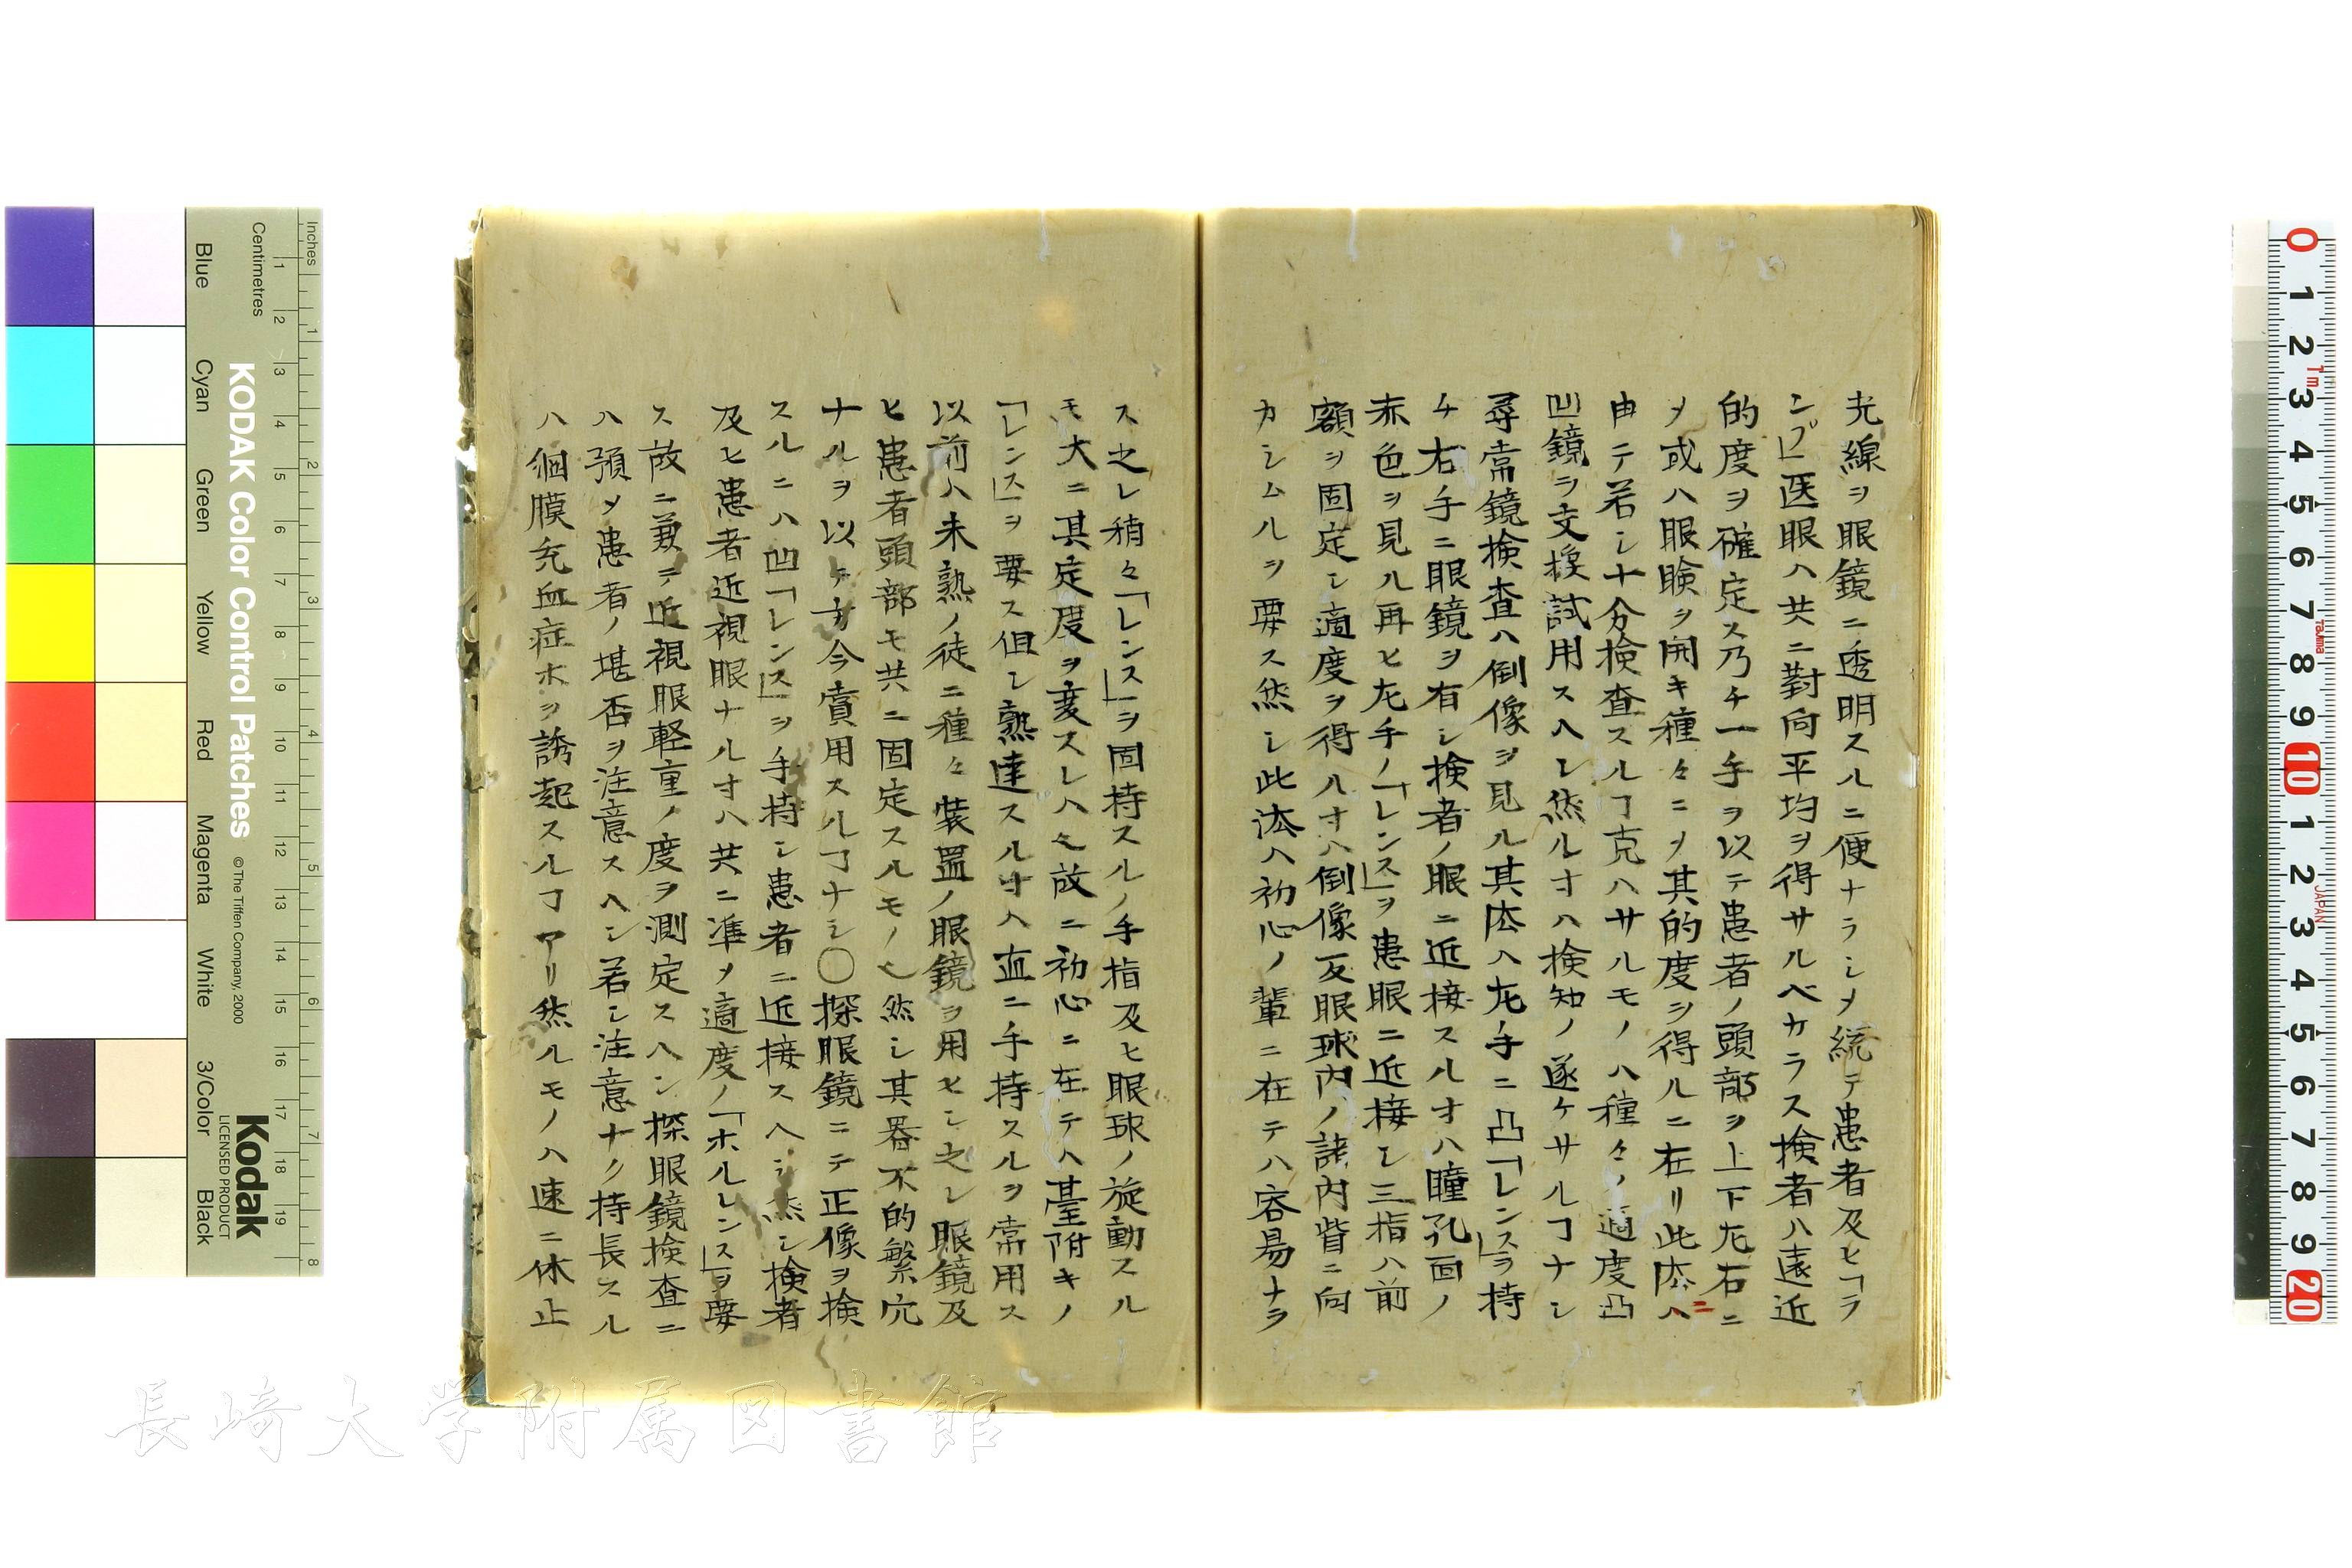 光線ヲ眼鏡ニ透明スルニ便ナラシメ続テ患者及ヒ「ラ
ンプ」医眼ハ共ニ對向平均ヲ得サルベカラス検者ハ遠近
的度ヲ確定ス乃チ一手ヲ以テ患者ノ頭部ヲ上下左右ニ
メ或ハ眼瞼ヲ開キ種々ニメ其的度ヲ得ルニ在リ此法ハニ
由テ若シ十分検査スルヿ克ハサルモノハ種々ノ適度凸
凹鏡ヲ交換試用スヘシ然ルオハ検知ノ遂ケサルヿナシ
尋常鏡検査ハ倒像ヲ見ル其法ハ左手ニ凸「レンス」ヲ持
チ右手ニ眼鏡ヲ有シ検者ノ眼ニ近接スルオハ瞳孔面ノ
赤色ヲ見ル再ヒ左手ノ「レンス」ヲ患眼ニ近接シ三指ハ前
額ヲ固定シ適度ヲ得ルオハ倒像反眼球内ノ諸内皆ニ向
カシムルヲ要ス然シ此法ハ初心ノ輩ニ在テハ容易ナラ
ス之レ稍々「レンス」ヲ固持スルノ手指及ヒ眼球ノ旋動スル
モ大ニ其定度ヲ変スレハ也故ニ初心ニ在テハ臺附キノ
「レンス」ヲ要ス但シ熟達スルオハ直ニ手持スルヲ常用ス
以前ハ未熟ノ徒ニ種々装置ノ眼鏡ヲ用ヒシ之レ眼鏡及
ヒ患者頭部モ共ニ固定スルモノ也然シ其器不的繁冗
ナルヲ以テ方今賞用スルヿナシ〇探眼鏡ニテ正像ヲ検
スルニハ凹「レンス」ヲ手持シ患者ニ近接スヘシ然シ検者
及ヒ患者近視眼ナルオハ共ニ準メ適度ノ「ホルレンス」ヲ要
ス故ニ兼テ近視眼軽重ノ度ヲ測定スヘシ探眼鏡検査ニ
ハ預メ患者ノ堪否ヲ注意スヘシ若シ注意ナク持長スル
ハ網膜充血症ホヲ誘起スルヿアリ然ルモノハ速ニ休止
Inches
Centimetres
KODAK Color Control Patches
© The Tiffen Company, 2000
Kodak
LICENSED PRODUCT
Blue
Cyan
Green
Yellow
Red
Magenta
White
3/Color
Black
長崎大学附属図書館